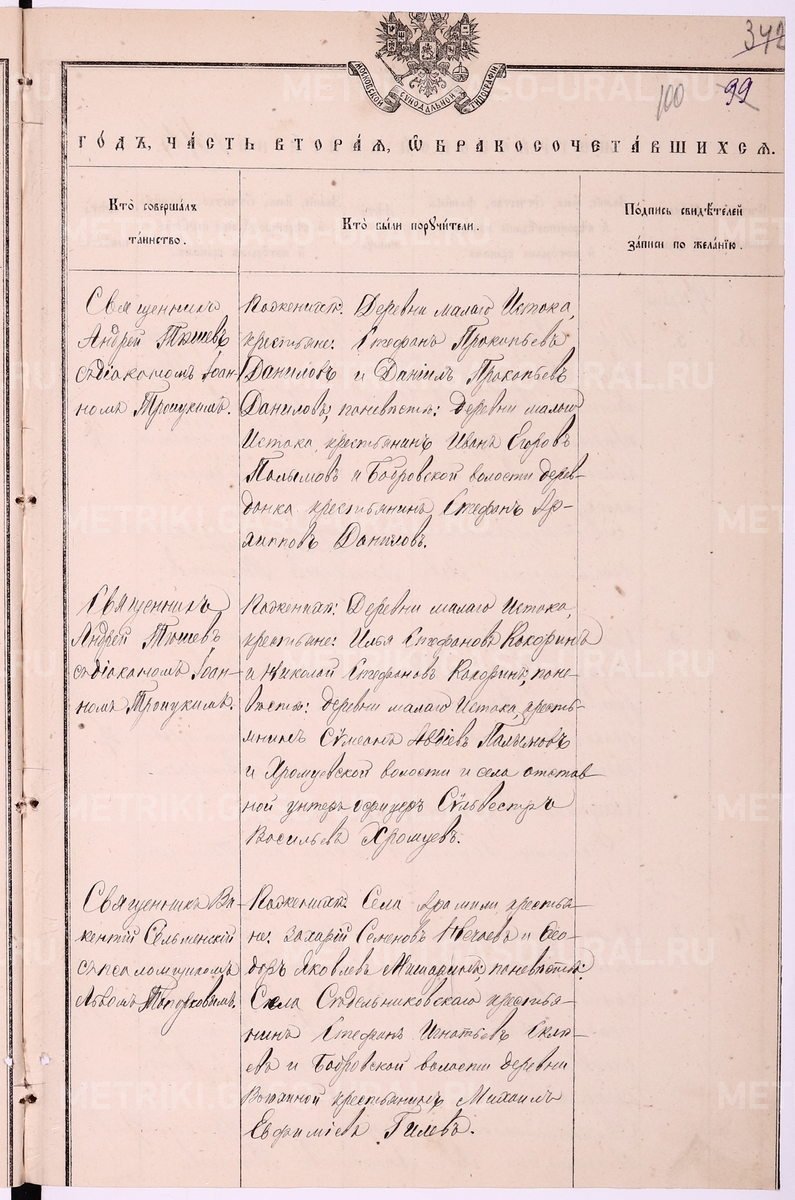 342
100 99
МОСКОВСКОЙ СѴНОДАЛЬНОЙ ТИПОГРАФІИ
ГОДЪ, ЧАСТЬ ВТОРАЯ, Ѡ БРАКОСОЧЕТАВШИХСЯ.
Кто совершалъ
таинство.
Кто были поручители.
Подпись свидѣтелей
записи по желанію.
Священникъ
Андрей Тюшевъ
съ діакономъ Іоан-
номъ
По женихѣ: Деревни малаго Истока,
крестьяне: Стефанъ Прокопьевъ
Даниловъ и Даніилъ Прокопьевъ
Даниловъ; по невѣстѣ: деревни малаго
Истока, крестьянинъ Иванъ Егоровъ
и Бобровской волости дерев-
крестьянинъ Стефанъ Ар-
хипповъ Даниловъ.
Священникъ
Андрей Тюшевъ
съ діакономъ Іоан-
номъ
По женихѣ: Деревни малаго Истока,
крестьяне: Илья Стефановъ Кокоринъ
и Николай Стефановъ Кокоринъ; по не-
вѣстѣ: деревни малаго Истока, кресть-
янинъ Сѵмеонъ Авдіевъ
и Хромцевской волости и села отстав-
ной унтеръ офицеръ Сѵльвестръ
Васильевъ Хромцевъ.
Священникъ Ви-
кентій
съ псаломщикомъ
Львомъ Топорковымъ.
По женихѣ: Села Арамили крестья-
не: Захарій Семеновъ Нечаевъ и Ѳео-
доръ Яковлевъ Мишаринъ; по невѣстѣ:
Села Сѣдельниковскаго крестья-
нинъ Стефанъ Игнатьевъ
и Бобровской волости деревни
крестьянинъ Михаилъ
Евфиміевъ Гилевъ.
METRIKI.GASO-URAL.RU